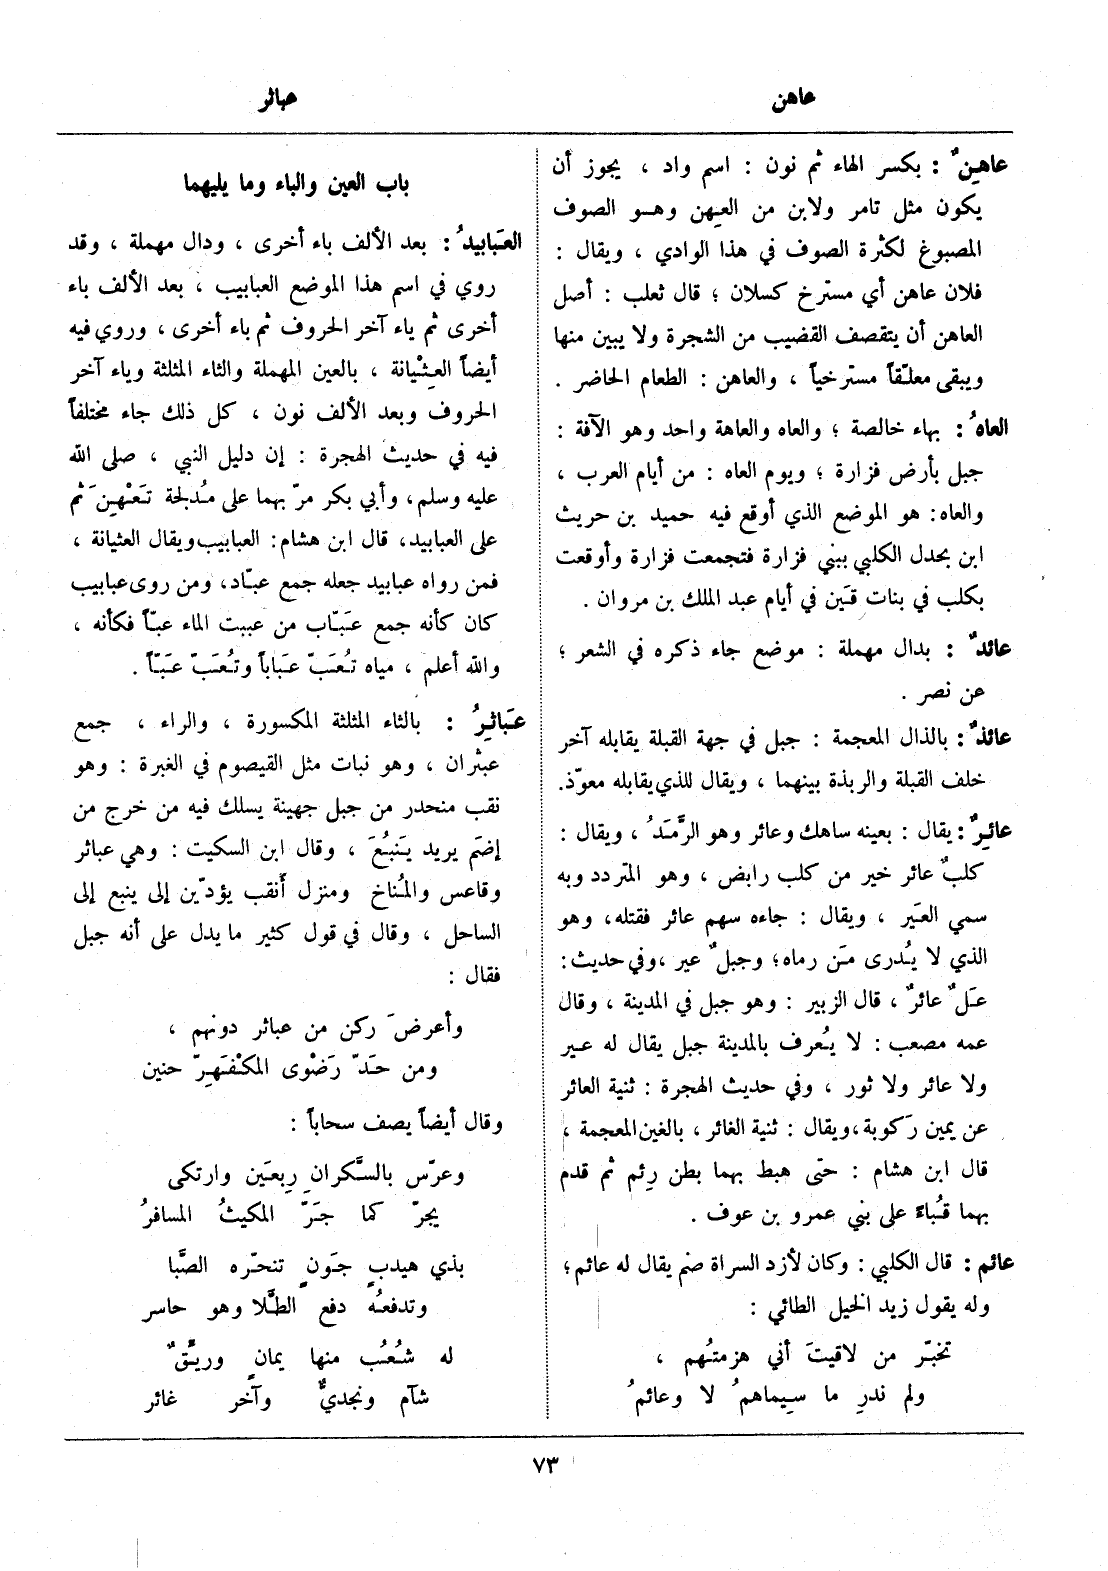 عاهن
عباثر
عاهِنٌ : بكسر الهاء ثم نون : اسم واد ، يجوز أن
يكون مثل تامر ولابن من العِهن وهو الصوف
المصبوغ لكثرة الصوف في هذا الوادي ، ويقال :
فلان عاهن أي مسترخ كسلان ؛ قال ثعلب : أصل
العاهن أن يتقصف القضيب من الشجرة ولا يبين منها
ويبقى معلّقاً مسترخياً ، والعاهن : الطعام الحاضر .
العاهُ : بهاء خالصة ؛ والعاه والعاهة واحد وهو الآفة :
جبل بأرض فزارة ؛ ويوم العاه : من أيام العرب ،
والعاه : هو الموضع الذي أوقع فيه حميد بن حريث
ابن بحدل الكلبي ببني فزارة فتجمعت فزارة وأوقعت
بكلب في بنات قَين في أيام عبد الملك بن مروان .
عائدٌ : بدال مهملة : موضع جاء ذكره في الشعر ؛
عن نصر .
عائذٌ : بالذال المعجمة : جبل في جهة القبلة يقابله آخر
خلف القبلة والربذة بينهما ، ويقال للذي يقابله معوّذ.
عائِرٌ : يقال : بعينه ساهك وعائر وهو الرَّمَدُ ، ويقال :
كلبٌ عائر خير من كلب رابض ، وهو المتردد وبه
سمي العَير ، ويقال : جاءه سهم عائر فقتله ، وهو
الذي لا يُدرى مَن رماه ؛ وجبلٌ عير ، وفي حديث :
عَلٌ عائرٌ ، قال الزبير : وهو جبل في المدينة ، وقال
عمه مصعب : لا يُعرف بالمدينة جبل يقال له عير
ولا عائر ولا ثور ، وفي حديث الهجرة : ثنية العائر
عن يمين رَكوبة ، ويقال : ثنية الغائر ، بالغين المعجمة ،
قال ابن هشام : حتى هبط بهما بطن رِئم ثم قدم
بهما قُباءَ على بني عمرو بن عوف .
عائم : قال الكلبي : وكان لأزد السراة صنم يقال له عائم ؛
وله يقول زيد الخيل الطائي :
تخبّر من لاقيتَ أني هزمتُهم ،
ولم ندرِ ما سِيماهمُ لا وعائمُ
باب العين والباء وما يليهما
العَبَابيدُ : بعد الألف باء أخرى ، ودال مهملة ، وقد
روي في اسم هذا الموضع العبابيب ، بعد الألف باء
أخرى ثم ياء آخر الحروف ثم باء أخرى ، وروي فيه
أيضاً العِثْيانة ، بالعين المهملة والثاء المثلثة وياء آخر
الحروف وبعد الألف نون ، كل ذلك جاء مختلفاً
فيه في حديث الهجرة : إن دليل النبي ، صلى الله
عليه وسلم ، وأبي بكر مرّ بهما على مُدلجة تَعْهِنَ ثم
على العبابيد ، قال ابن هشام : العبابيب ويقال العثيانة ،
فمن رواه عبابيد جعله جمع عبّاد ، ومن روى عبابيب
كان كأنه جمع عَبّاب من عببت الماء عبّاً فكأنه ،
والله أعلم ، مياه تُعَبّ عَباباً وتُعَبّ عَبّاً .
عَبَاثِرُ : بالثاء المثلثة المكسورة ، والراء ، جمع
عبثران ، وهو نبات مثل القيصوم في الغبرة : وهو
نقب منحدر من جبل جهينة يسلك فيه من خرج من
إضَم يريد يَنبُعَ ، وقال ابن السكيت : وهي عباثر
وقاعس والمُناخ ومنزل أَنقب يؤدّين إلى ينبع إلى
الساحل ، وقال في قول كثير ما يدل على أنه جبل
فقال :
وأعرضَ ركن من عباثر دونهم ،
ومن حَدّ رَضْوى المكْفَهِرّ حنين
وقال أيضاً يصف سحاباً :
وعرّس بالسَّكرانِ رِبعَين وارتكى
يجرّ كما جَرّ المكيثُ المسافرُ
بذي هيدبٍ جَونٍ تنحّره الصَّبا
وتدفعُه دفع الطَّلا وهو حاسر
له شُعُب منها يمانٍ وريّقٌ
شآم ونجديٌّ وآخر غائر
٧٣